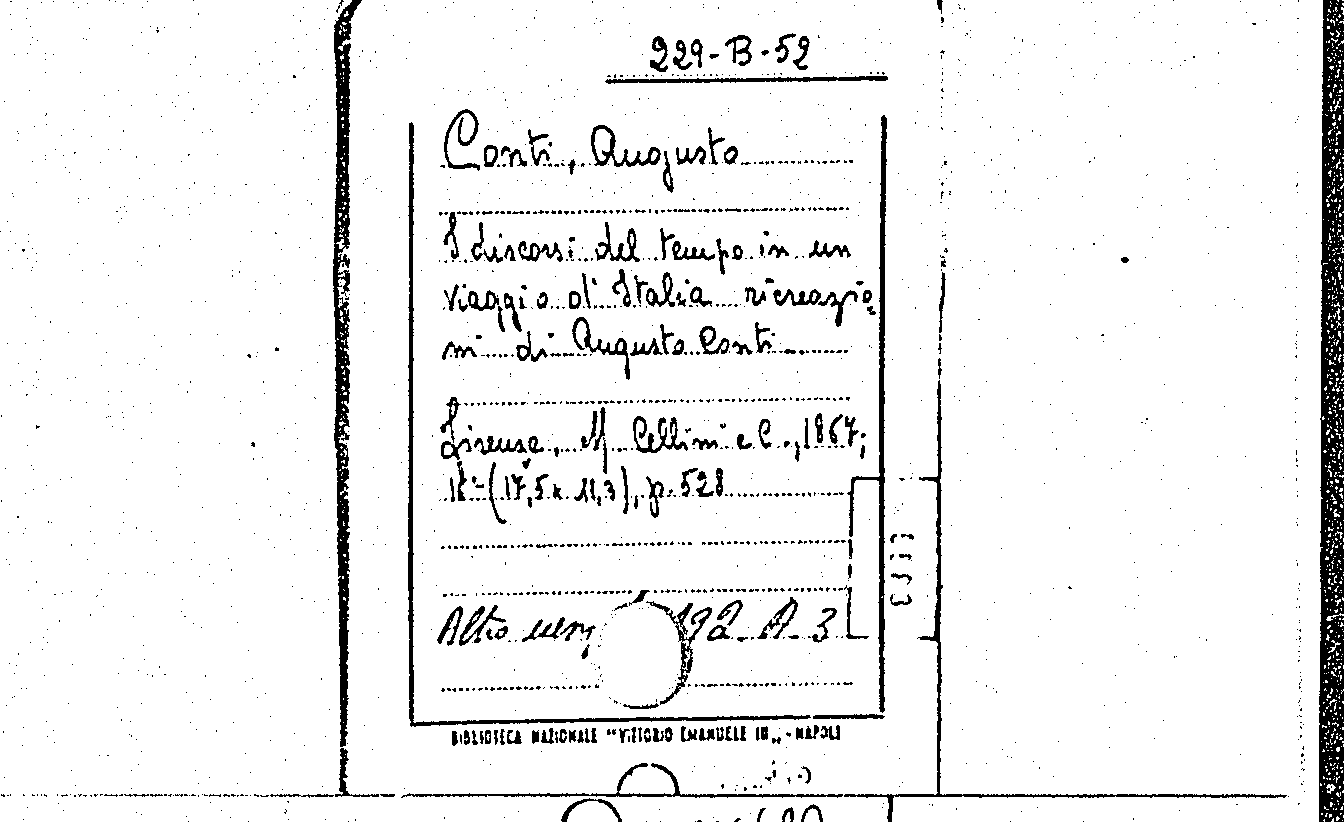 229-B-52
Conti, Augusto
I discorsi del tempo in un
viaggio d'Italia ricreazio=
ni di Augusto Conti
Firenze, M. Cellini e C., 1867;
(17,5 x 11,3), p. 528
Altro 192-A-3
BIBLIOTECA NAZIONALE "VITTORIO EMANUELE III„ - NAPOLI